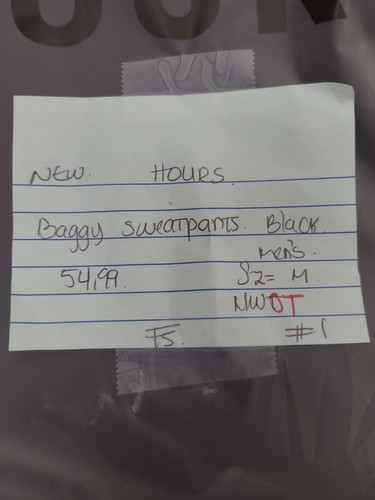 NEW. HOURS.
Baggy sweatpants. Black.
men's
54.99. Sz= M.
NWOT
FS. #1